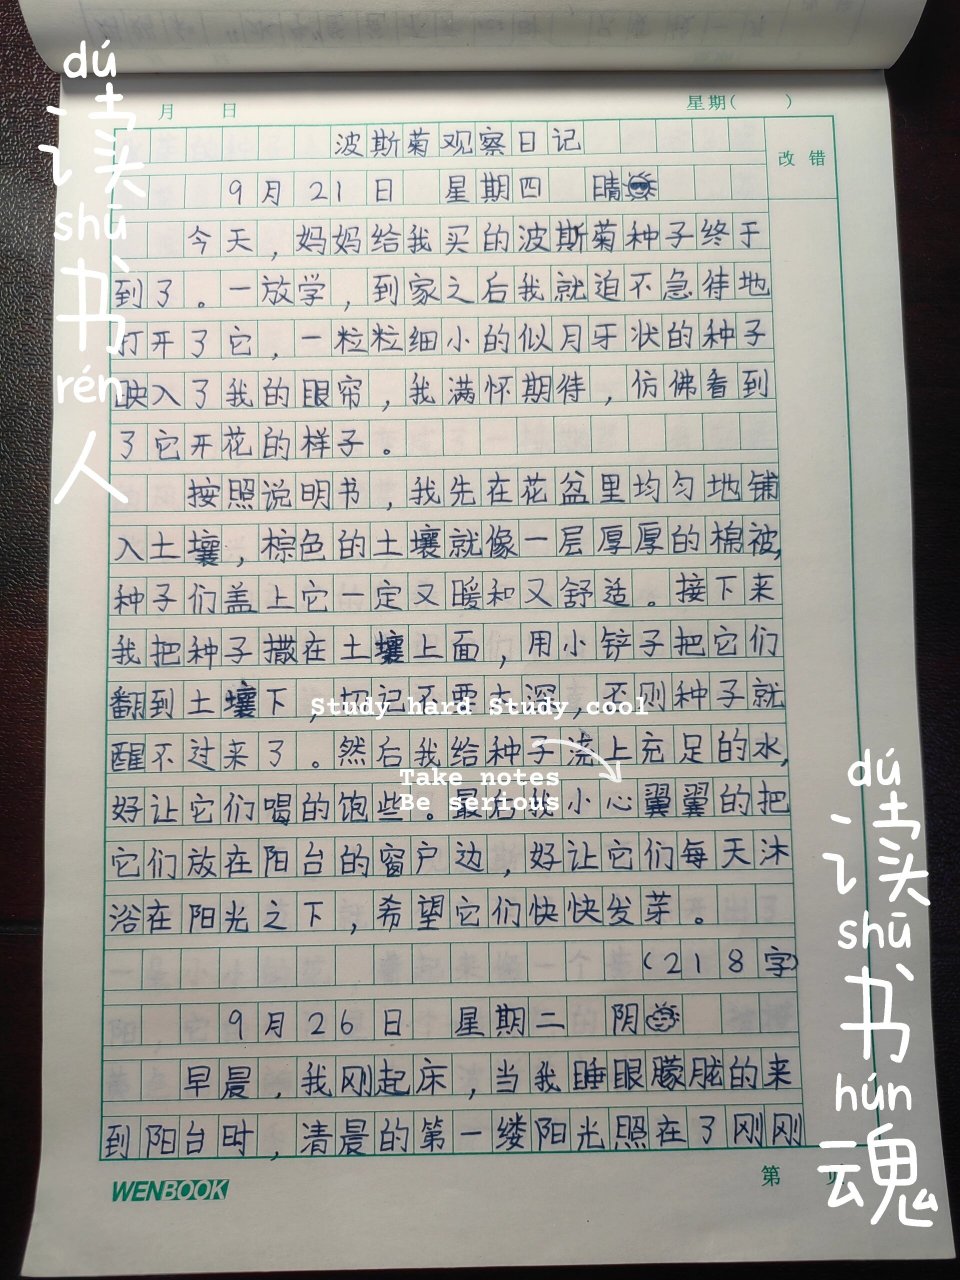 dú
读
shū
书
rén
人
月 日 星期( )
改错
波斯菊观察日记
9月21日 星期四 晴
今天,妈妈给我买的波斯菊种子终于
到了。一放学,到家之后我就迫不急待地
打开了它,一粒粒细小的似月牙状的种子
映入了我的眼帘,我满怀期待,仿佛看到
了它开花的样子。
按照说明书,我先在花盆里均匀地铺
入土壤,棕色的土壤就像一层厚厚的棉被,
种子们盖上它一定又暖和又舒适。接下来
我把种子撒在土壤上面,用小铲子把它们
翻到土壤下,切记不要太深,否则种子就
醒不过来了。然后我给种子浇上充足的水,
好让它们喝的饱些。最后我小心翼翼的把
它们放在阳台的窗户边,好让它们每天沐
浴在阳光之下,希望它们快快发芽。
(218字)
9月26日 星期二 阴
早晨,我刚起床,当我睡眼朦胧的来
到阳台时,清晨的第一缕阳光照在了刚刚
Study hard Study cool
Take notes
Be serious
dú
读
shū
书
hún
魂
WENBOOK
第 页